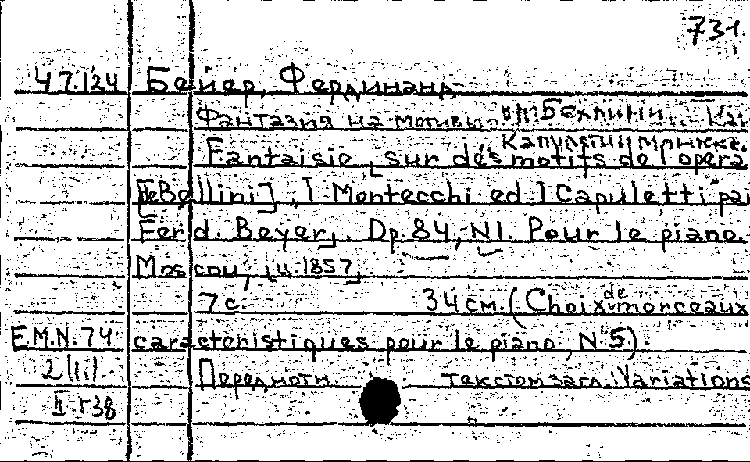 731.
47.124 Бейер, Фердинанд
Фантазия на мотивы оп. Беллини.. Ка
Капулетти и Монтекки.
Fantaisie, sur des motifs de l'opera
[de Bellini], I Montecchi ed I Capuletti pa
Ferd. Beyer, Op. 84, N1. Pour le piano.
Moscou, [ц. 1857]
7 с. 34 см. (Choix de morceaux
E.M.N.74 caracteristiques pour le piano, N 5).
2(II) Перед нотн. текстом загл.: Variations
II г38